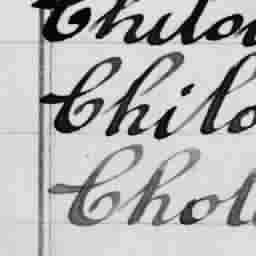 Chilo
Chilo
Chol